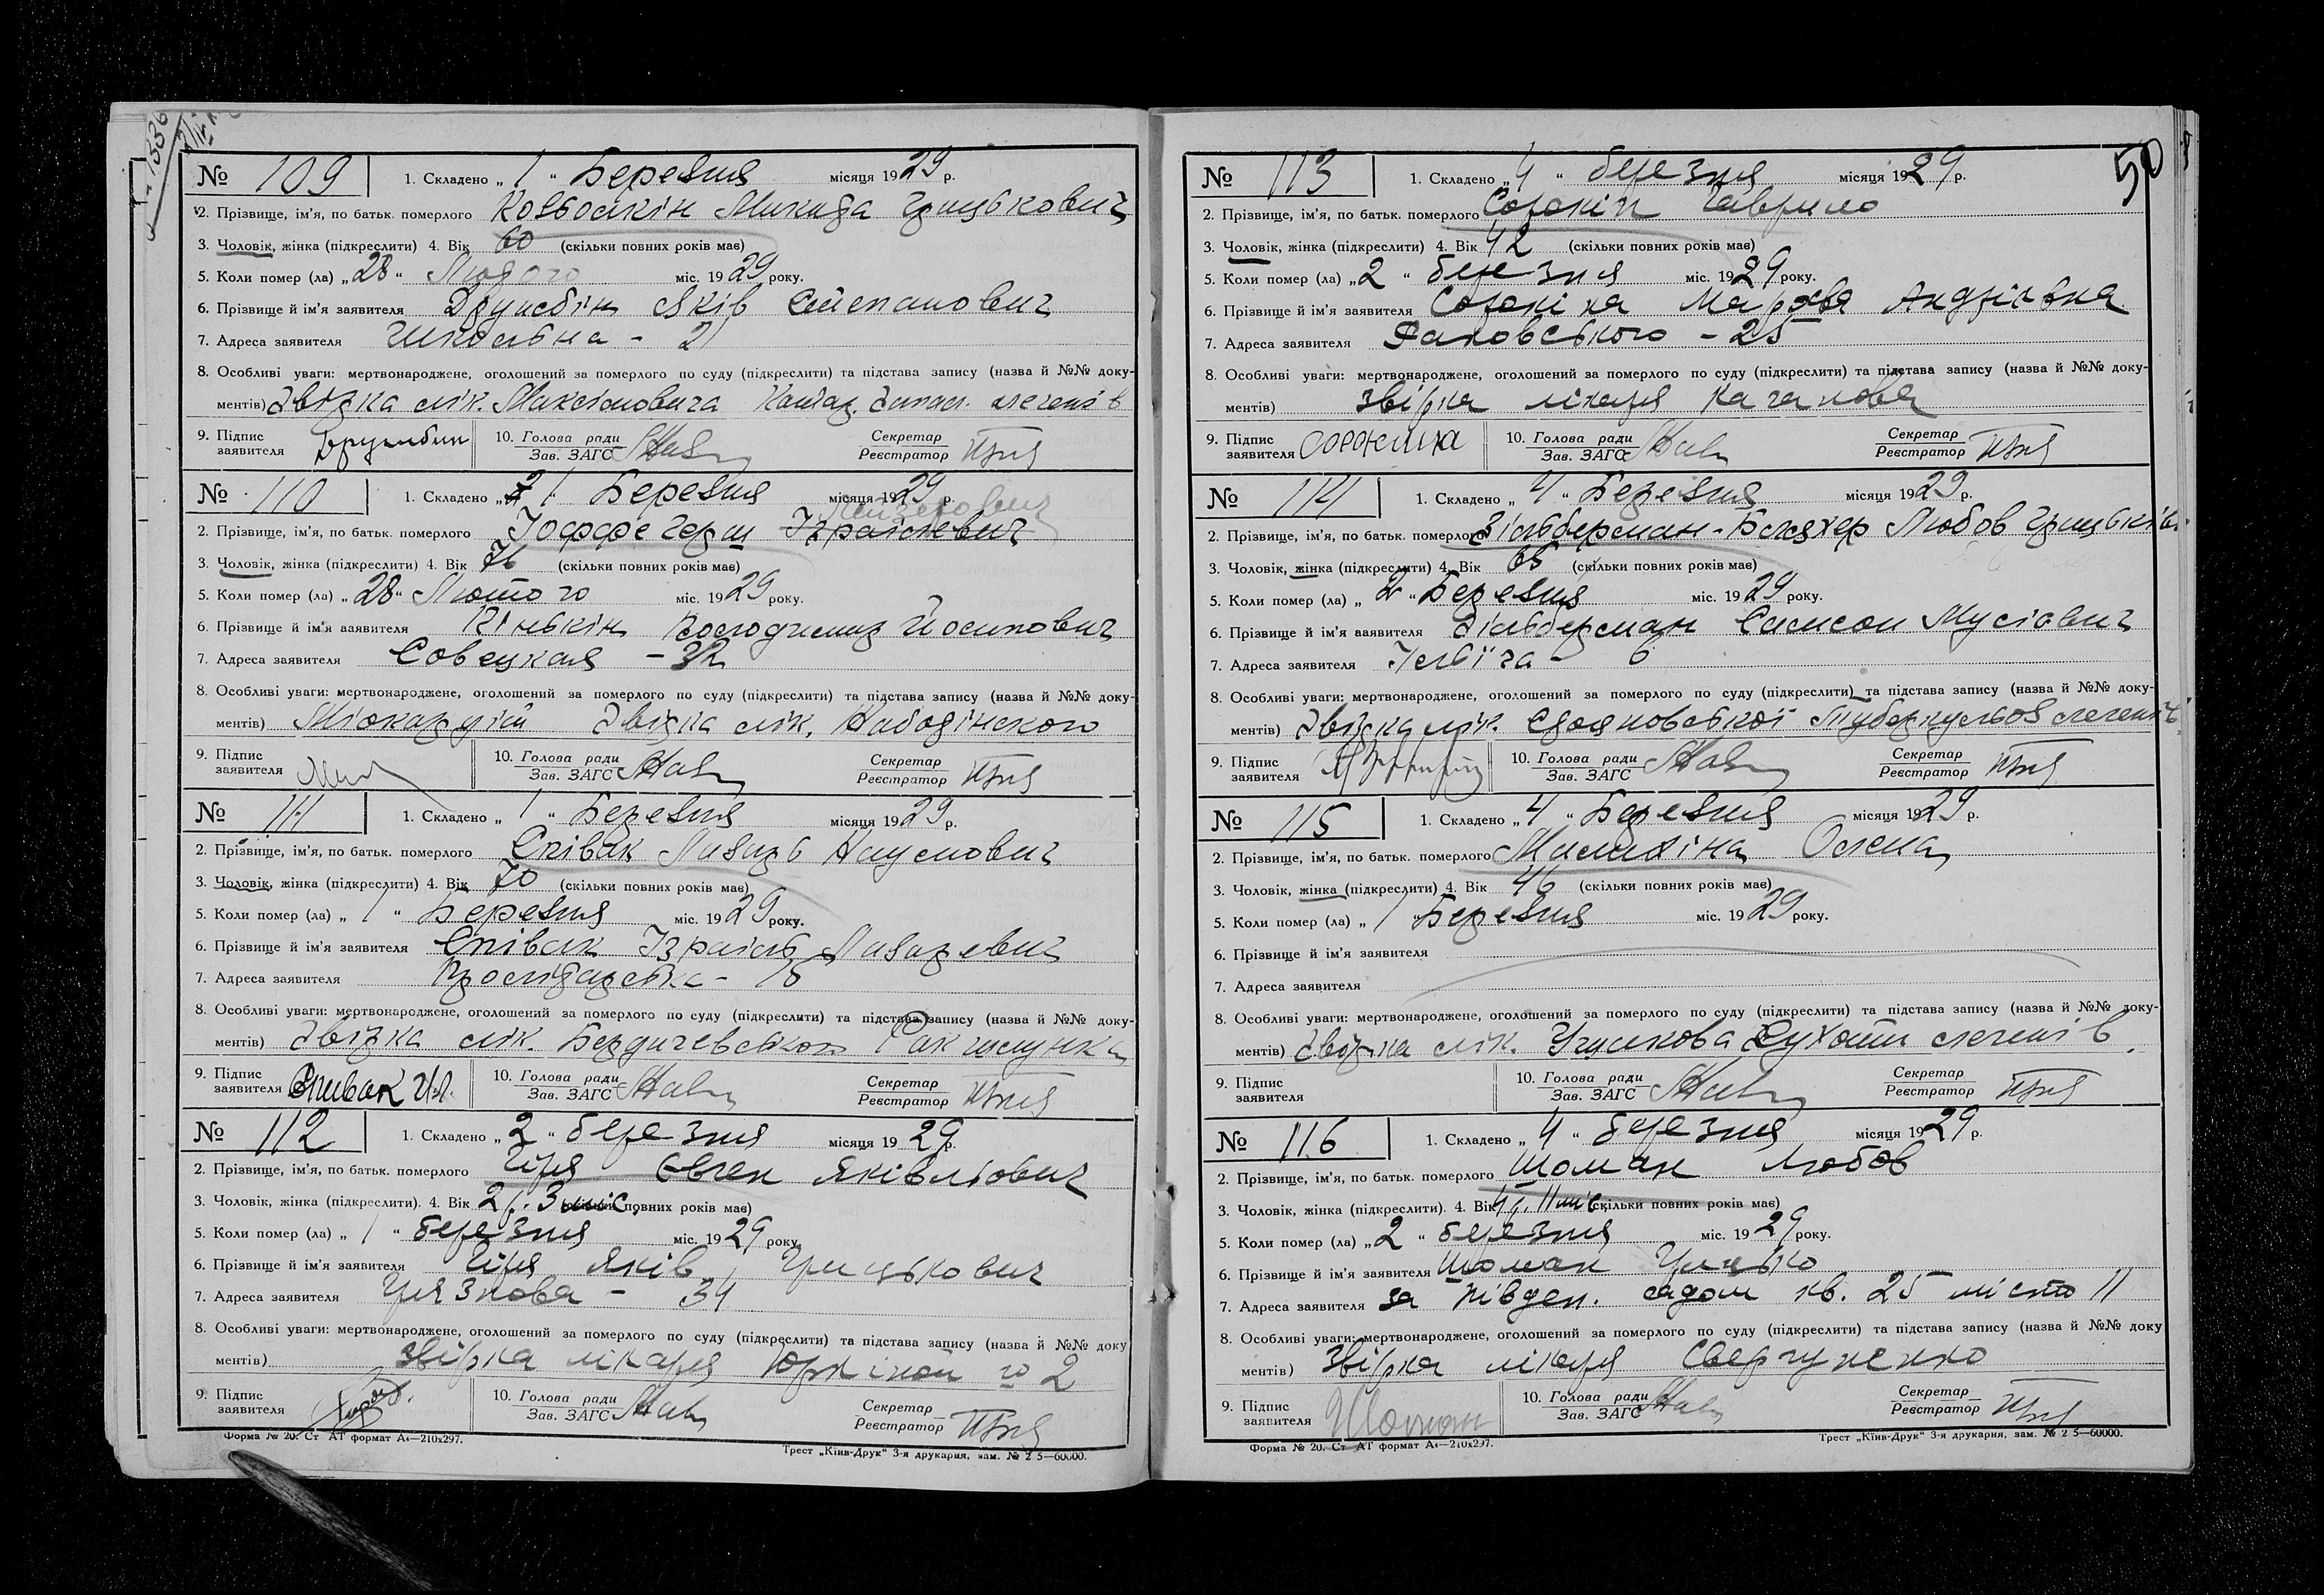 № 109 1. Складено „ 1 “ Березня місяця 1929 р.
2. Прізвище, ім'я, по батьк. померлого Микита Грицькович
3. Чоловік, жінка (підкреслити) 4. Вік 60 (скільки повних років має)
5. Коли помер (ла) „ 28 “ Лютого міс. 1929 року.
6. Прізвище й ім'я заявителя Яків Степанович
7. Адреса заявителя Шкільна - 21
8. Особливі уваги: мертвонароджене, оголошений за померлого по суду (підкреслити) та підстава запису (назва й №№ доку-
ментів) Звідка лік. Максімовича Катар. запал. легенів
9. Підпис заявителя 10. Голова ради Зав. ЗАГС Секретар Реєстратор
№ 110 1. Складено „ 1 “ Березня місяця 1929 р.
2. Прізвище, ім'я, по батьк. померлого Іоффе Герш Ізраілевич
3. Чоловік, жінка (підкреслити) 4. Вік 76 (скільки повних років має)
5. Коли помер (ла) „ 28 “ Лютого міс. 1929 року.
6. Прізвище й ім'я заявителя Володимир Йосипович
7. Адреса заявителя Совецкая - 32
8. Особливі уваги: мертвонароджене, оголошений за померлого по суду (підкреслити) та підстава запису (назва й №№ доку-
ментів) Міокардіт Звідка лік.
9. Підпис заявителя 10. Голова ради Зав. ЗАГС Секретар Реєстратор
№ 111 1. Складено „ 1 “ Березня місяця 1929 р.
2. Прізвище, ім'я, по батьк. померлого Співак Лазарь Наумович
3. Чоловік, жінка (підкреслити) 4. Вік 70 (скільки повних років має)
5. Коли помер (ла) „ 1 “ Березня міс. 1929 року.
6. Прізвище й ім'я заявителя Співак Ізраіль Лазаревич
7. Адреса заявителя
8. Особливі уваги: мертвонароджене, оголошений за померлого по суду (підкреслити) та підстава запису (назва й №№ доку-
ментів) Звідка лік. Бердичевського Рак шлунка
9. Підпис заявителя Спивак Из. 10. Голова ради Зав. ЗАГС Секретар Реєстратор
№ 112 1. Складено „ 2 “ березня місяця 1929 р.
2. Прізвище, ім'я, по батьк. померлого Євген Яківльович
3. Чоловік, жінка (підкреслити). 4. Вік 2 р. 3 міс. (скільки повних років має)
5. Коли помер (ла) „ 1 “ березня міс. 1929 року.
6. Прізвище й ім'я заявителя Яків Грицькович
7. Адреса заявителя Грязнова - 34
8. Особливі уваги: мертвонароджене, оголошений за померлого по суду (підкреслити) та підстава запису (назва й №№ доку
ментів) звірка лікаря 2
9. Підпис заявителя 10. Голова ради Зав. ЗАГС Секретар Реєстратор
Форма № 20. Ст АТ формат А4—210х297.
Трест „Київ-Друк“ 3-я друкарня, зам. № 2 5—60000.
50
№ 113 1. Складено „ 4 “ березня місяця 1929 р.
2. Прізвище, ім'я, по батьк. померлого Сорокін Гаврило
3. Чоловік, жінка (підкреслити) 4. Вік 42 (скільки повних років має)
5. Коли помер (ла) „ 2 “ березня міс. 1929 року.
6. Прізвище й ім'я заявителя Сорокіна Марфа Андріівна
7. Адреса заявителя Раковського - 25
8. Особливі уваги: мертвонароджене, оголошений за померлого по суду (підкреслити) та підстава запису (назва й №№ доку-
ментів) звірка лікаря Каганова
9. Підпис заявителя Сорокина 10. Голова ради Зав. ЗАГС Секретар Реєстратор
№ 114 1. Складено „ 4 “ Березня місяця 1929 р.
2. Прізвище, ім'я, по батьк. померлого Зільберман - Любов
3. Чоловік, жінка (підкреслити) 4. Вік 65 (скільки повних років має)
5. Коли помер (ла) „ 2 “ Березня міс. 1929 року.
6. Прізвище й ім'я заявителя Зільберман Самсон Мусіович
7. Адреса заявителя Ілліча - 6
8. Особливі уваги: мертвонароджене, оголошений за померлого по суду (підкреслити) та підстава запису (назва й №№ доку-
ментів) Звідка лік. Туберкульоз легенів
9. Підпис заявителя 10. Голова ради Зав. ЗАГС Секретар Реєстратор
№ 115 1. Складено „ 4 “ Березня місяця 1929 р.
2. Прізвище, ім'я, по батьк. померлого Олена
3. Чоловік, жінка (підкреслити) 4. Вік 46 (скільки повних років має)
5. Коли помер (ла) „ 1 “ Березня міс. 1929 року.
6. Прізвище й ім'я заявителя
7. Адреса заявителя
8. Особливі уваги: мертвонароджене, оголошений за померлого по суду (підкреслити) та підстава запису (назва й №№ доку-
ментів) Звідка лік. Сухоти легенів
9. Підпис заявителя 10. Голова ради Зав. ЗАГС Секретар Реєстратор
№ 116 1. Складено „ 4 “ березня місяця 1929 р.
2. Прізвище, ім'я, по батьк. померлого Шоман Любов
3. Чоловік, жінка (підкреслити). 4. Вік 4 р. 11 міс. (скільки повних років має)
5. Коли помер (ла) „ 2 “ березня міс. 1929 року.
6. Прізвище й ім'я заявителя Шоман Грицько
7. Адреса заявителя за півден. садом кв. 25 місто 11
8. Особливі уваги: мертвонароджене, оголошений за померлого по суду (підкреслити) та підстава запису (назва й №№ доку
ментів) звірка лікаря Свергуненко
9. Підпис заявителя Шоман 10. Голова ради Зав. ЗАГС Секретар Реєстратор
Форма № 20. Ст АТ формат А4—210х297.
Трест „Київ-Друк“ 3-я друкарня, зам. № 2 5—60000.